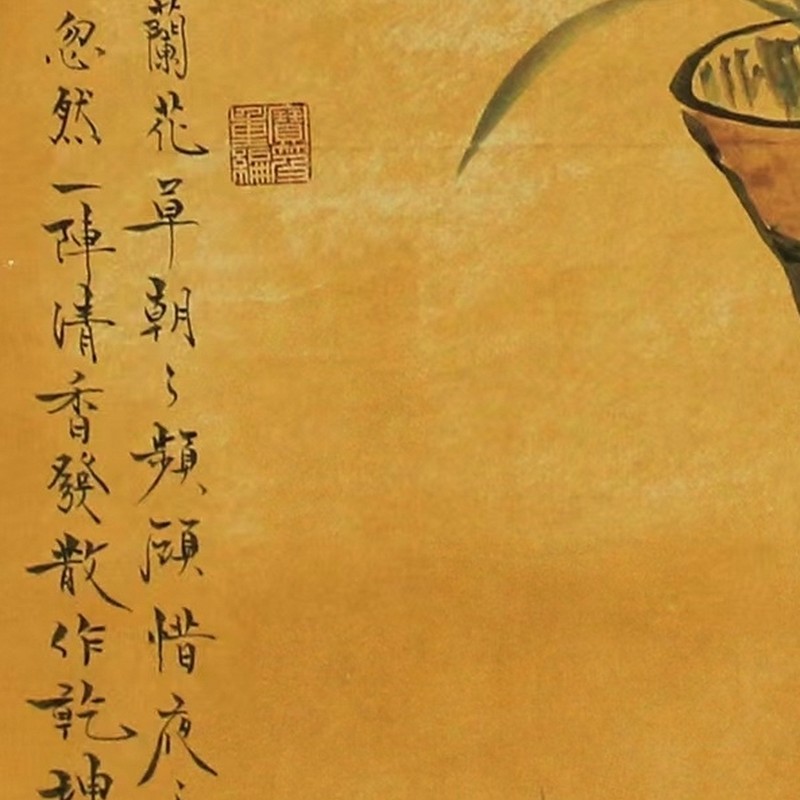 蘭花草朝々頻顧惜夜々
忽然一陣清香發散作乾坤
寶笈重編